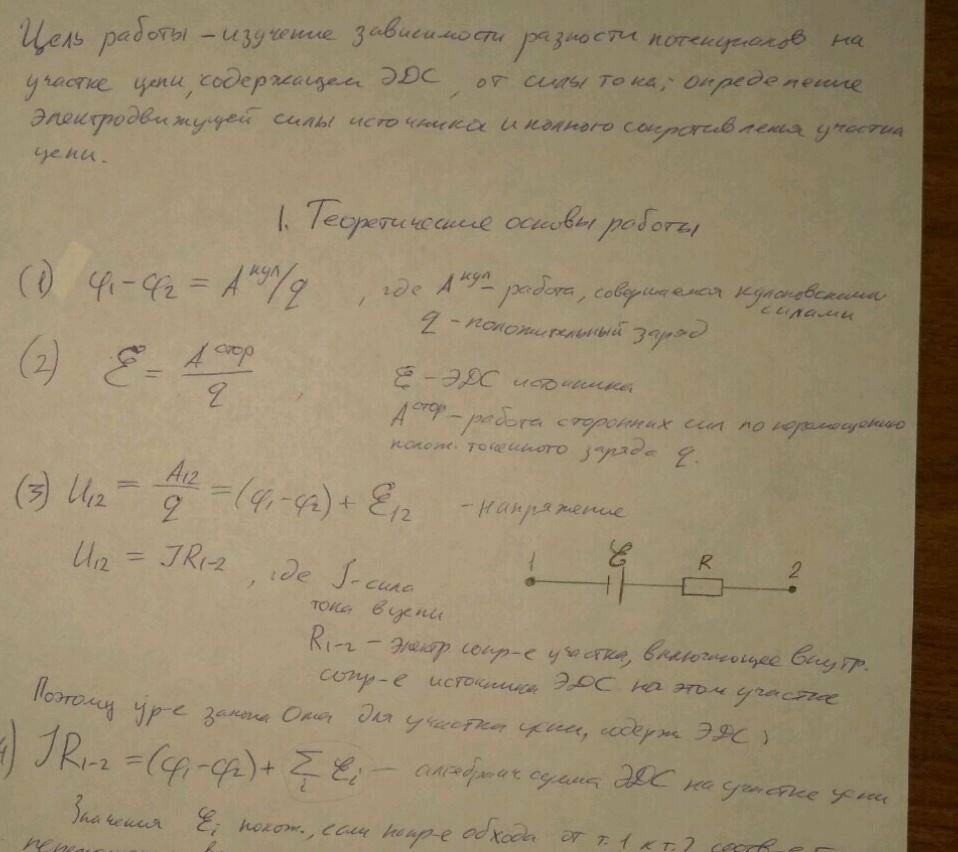 Цель работы – изучение зависимости разности потенциалов на
участке цепи, содержащем ЭДС, от силы тока; определение
электродвижущей силы источника и полного сопротивления участка
цепи.
1. Теоретические основы работы
(1) φ₁-φ₂ = Aᵏʸᴫ/q , где Aᵏʸᴫ – работа, совершаемая кулоновскими
силами
q – положительный заряд
(2) ℰ = Aᶜᵀᴼᴾ/q , ℰ – ЭДС источника
Aᶜᵀᴼᴾ – работа сторонних сил по перемещению
полож. точечного заряда q.
(3) U₁₂ = A₁₂/q = (φ₁-φ₂) + ℰ₁₂ – напряжение
1 ℰ R 2
U₁₂ = JR₁₋₂ , где J – сила
тока в цепи
R₁₋₂ – электр сопр-е участка, включающее внутр.
сопр-е источника ЭДС на этом участке
Поэтому ур-е закона Ома для участка цепи, содерж ЭДС:
4) JR₁₋₂ = (φ₁-φ₂) + Σᵢ ℰᵢ – алгебраич сумма ЭДС на участке цепи
Значения ℰᵢ полож., если напр-е обхода от т. 1 к т. 2